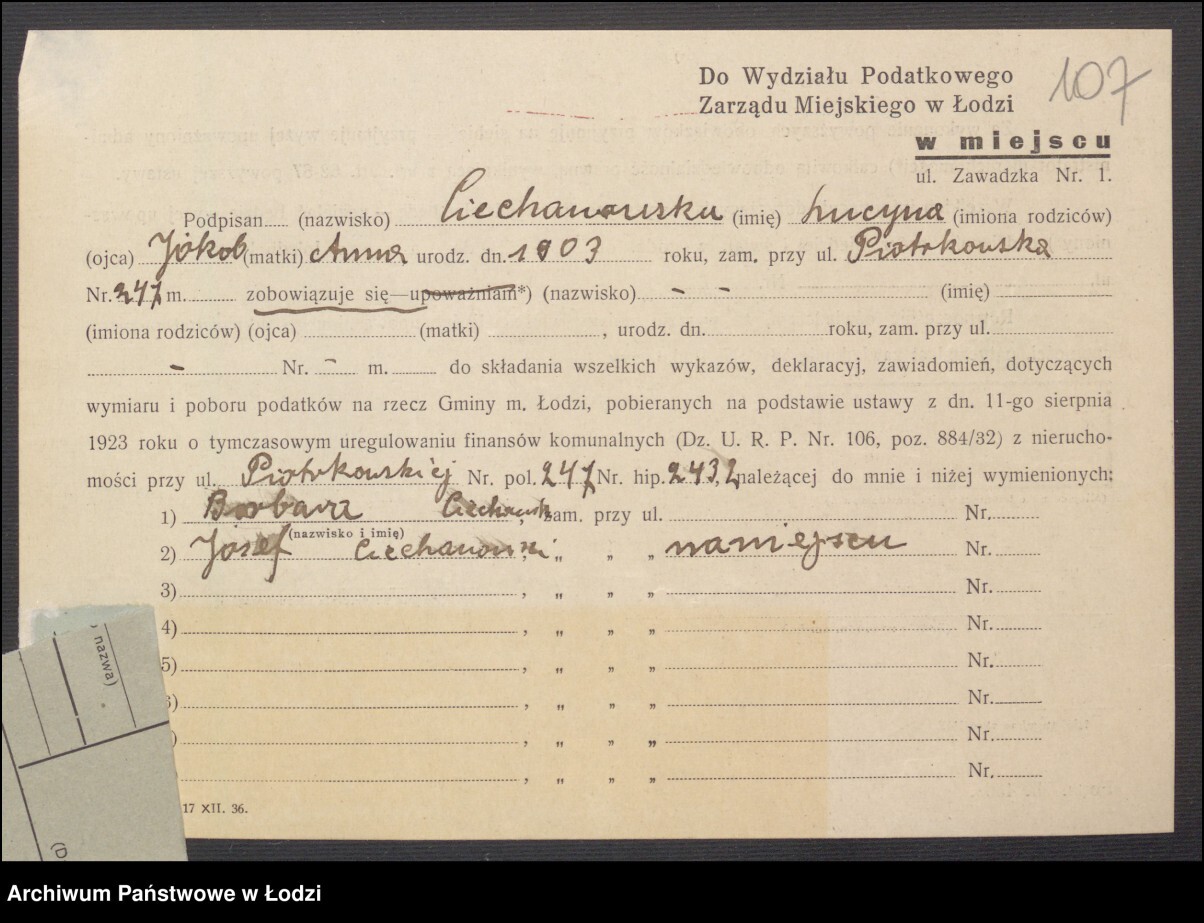 Do Wydziału Podatkowego
Zarządu Miejskiego w Łodzi
107
w miejscu
ul. Zawadzka Nr. 1.
Podpisan..... (nazwisko) Ciechanowska (imię) Lucyna (imiona rodziców)
(ojca) Jakob (matki) Anna urodz. dn. 1903 roku, zam. przy ul. Piotrkowska
Nr. 247 m. zobowiązuje się—upoważniam*) (nazwisko) - - (imię)
(imiona rodziców) (ojca) (matki) , urodz. dn. roku, zam. przy ul.
- Nr. - m. do składania wszelkich wykazów, deklaracyj, zawiadomień, dotyczących
wymiaru i poboru podatków na rzecz Gminy m. Łodzi, pobieranych na podstawie ustawy z dn. 11-go sierpnia
1923 roku o tymczasowym uregulowaniu finansów komunalnych (Dz. U. R. P. Nr. 106, poz. 884/32) z nierucho-
mości przy ul. Piotrkowskiej Nr. pol. 247 Nr. hip. 2432 należącej do mnie i niżej wymienionych:
1) Barbara , zam. przy ul. Nr.
(nazwisko i imię)
2) Józef Ciechanowski , „ „ „ namiejscu Nr.
3) , „ „ „ Nr.
4) , „ „ „ Nr.
5) , „ „ „ Nr.
) , „ „ „ Nr.
) , „ „ „ Nr.
, „ „ „ Nr.
17 XII. 36.
nazwa)
(D
Archiwum Państwowe w Łodzi